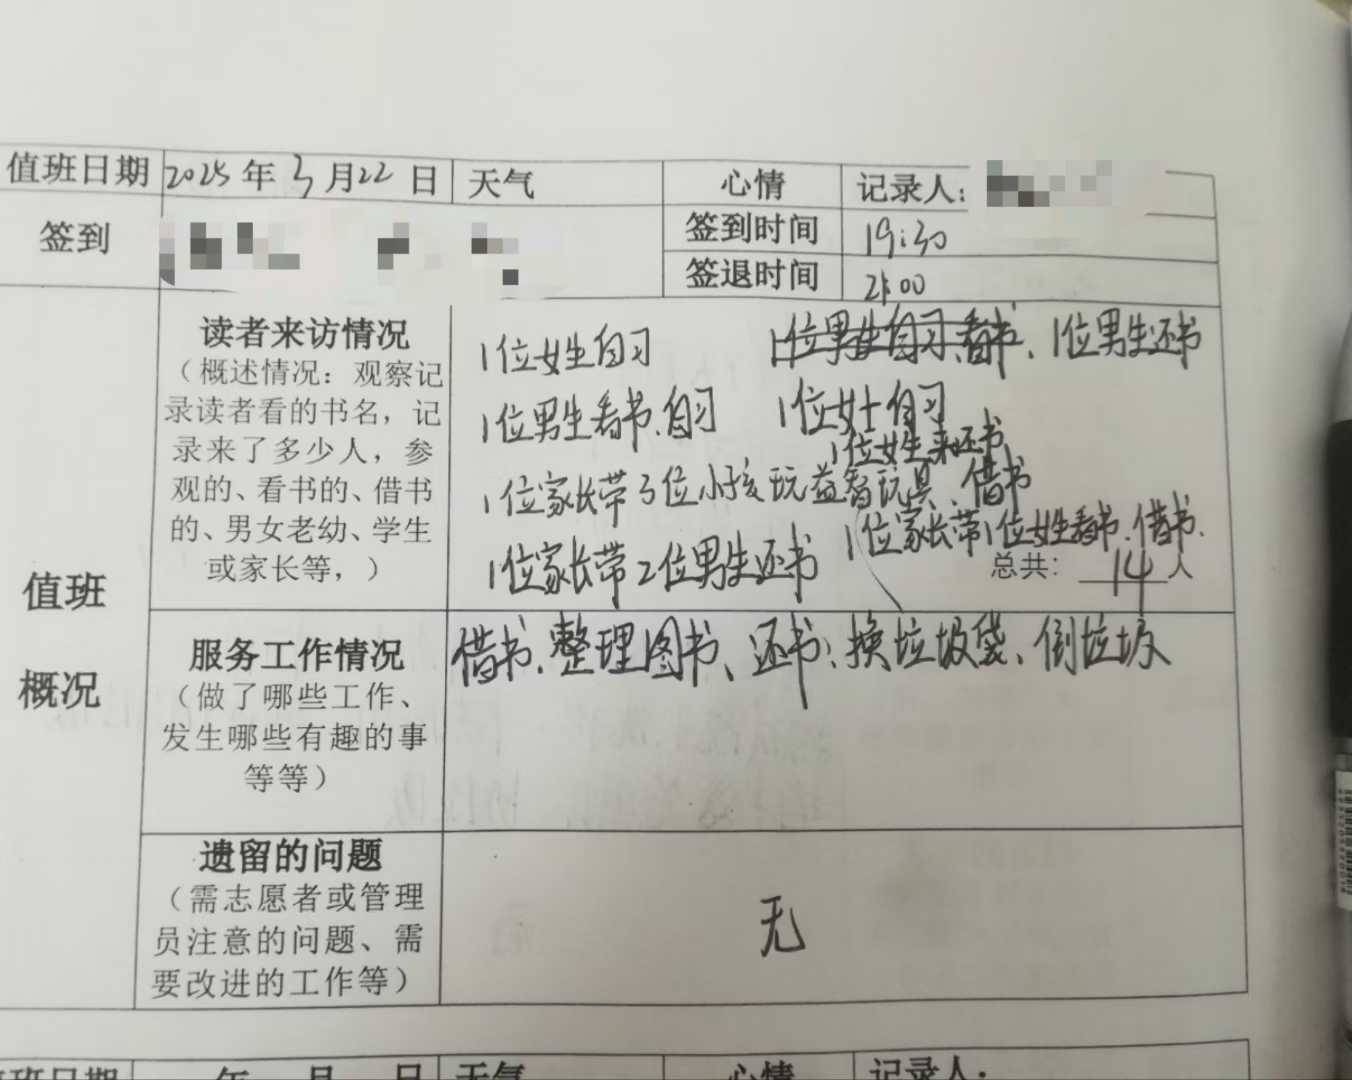 值班日期 2025年3月22日 天气 心情 记录人：
签到 签到时间 19:30
签退时间 21:00
值班
概况
读者来访情况
（概述情况：观察记
录读者看的书名，记
录来了多少人，参
观的、看书的、借书
的、男女老幼、学生
或家长等，）
1位女生自习 1位男生自习.看书、1位男生还书
1位男生看书.自习 1位女士自习
1位女生来还书
1位家长带3位小孩玩益智玩具、借书
1位家长带2位男生还书 1位家长带1位女生看书.借书.
总共：14人
服务工作情况
（做了哪些工作、
发生哪些有趣的事
等等）
借书、整理图书、还书；换垃圾袋、倒垃圾
遗留的问题
（需志愿者或管理
员注意的问题、需
要改进的工作等）
无
值班日期 年 月 日 天气 心情 记录人：